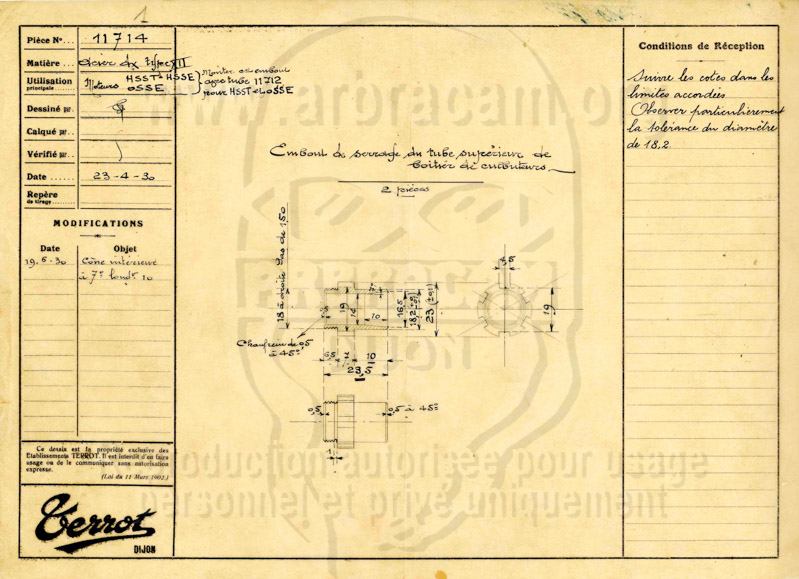 1
Pièce No... 11714
Matière.. acier Dx type XII
Utilisation principale Moteurs HSST & HSSE
OSSE
Monter cet embout
avec tube 11712
pour HSST et OSSE
Dessiné par.
Calqué par.
Vérifié par.
Date ...... 23-4-30
Repère de tirage
MODIFICATIONS
Date Objet
19.6-30 Cône intérieur
à 7°
10
Ce dessin est la propriété exclusive des
Etablissements TERROT. Il est interdit d'en faire
usage ou de le communiquer sans autorisation
expresse.
(Loi du 11 Mars 1902.)
Terrot
DIJON
Embout de serrage du tube supérieur de
boîtier de culbuteurs
2 pièces
18 à droite Pas de 150
19
14
10
16,5
18,2
23
Chanfrein de 0,5
à 45°
6,5
7
10
23,5
19
0,5
0,5 à 45°
1
Conditions de Réception
Suivre les cotes dans les
limites accordées
Observer particulièrement
la tolérance du diamètre
de 18,2
www.arbracan.o
DIJON
production autorisée pour usage
personnel et privé uniquement